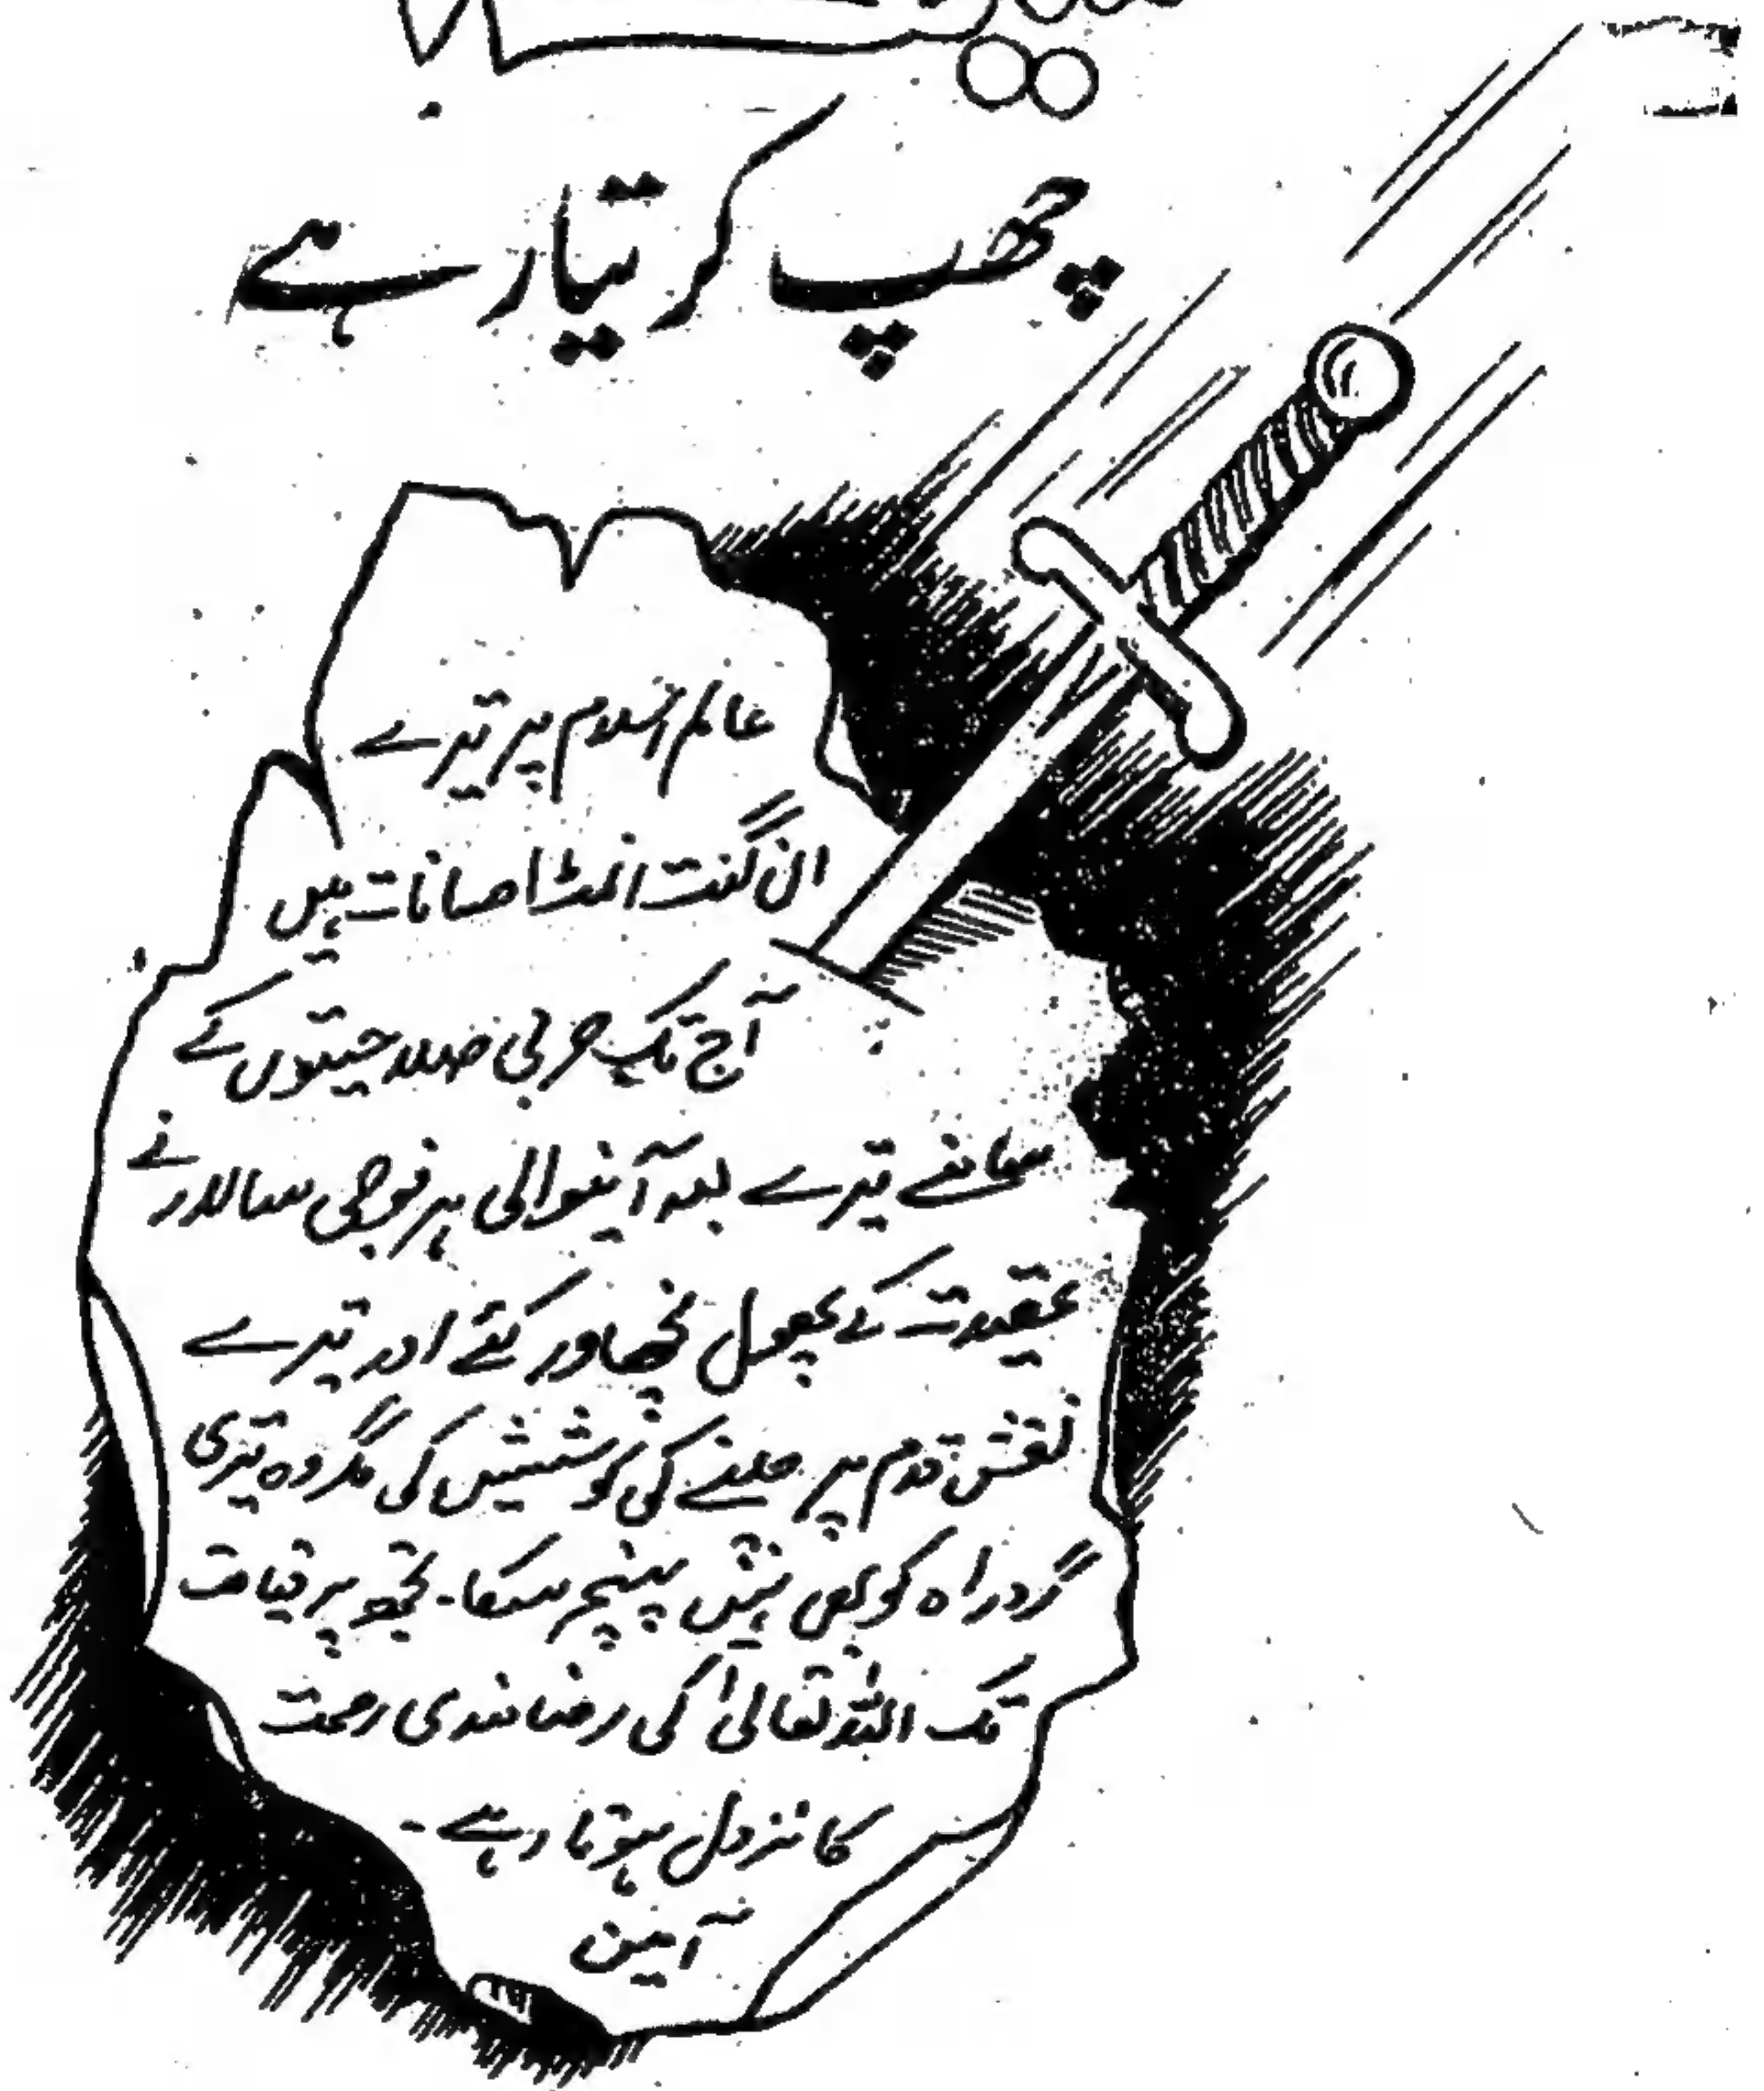 چھپ کر تیار ہے
عالم اسلام پر تیرے
ان گنت انمٹ احسانات ہیں
آج تک حربی صلاحیتوں کے
سامنے تیرے بعد آنیوالی ہر فوجی سالار نے
عقیدت کے پھول نچھاور کئے اور تیرے
نقش قدم پر چلنے کی کوششیں کی مگر وہ تیری
گردراہ کو بھی نہیں پہنچ سکا۔ تجھ پر قیامت
تک اللہ تعالیٰ کی رضا مندی رحمت
کا نزول ہوتا رہے۔
آمین